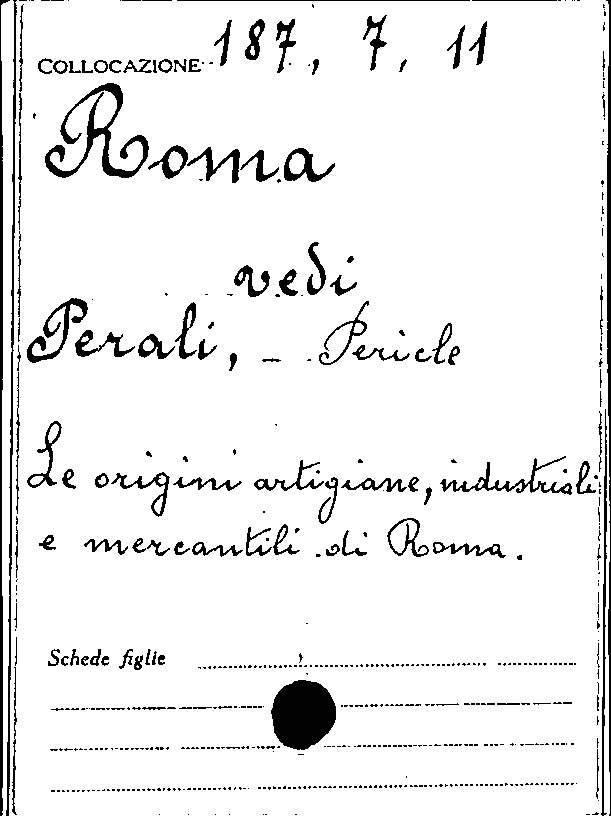 COLLOCAZIONE 187, 7, 11
Roma
vedi
Perali, - Pericle
Le origini artigiane, industriali
e mercantili di Roma.
Schede figlie